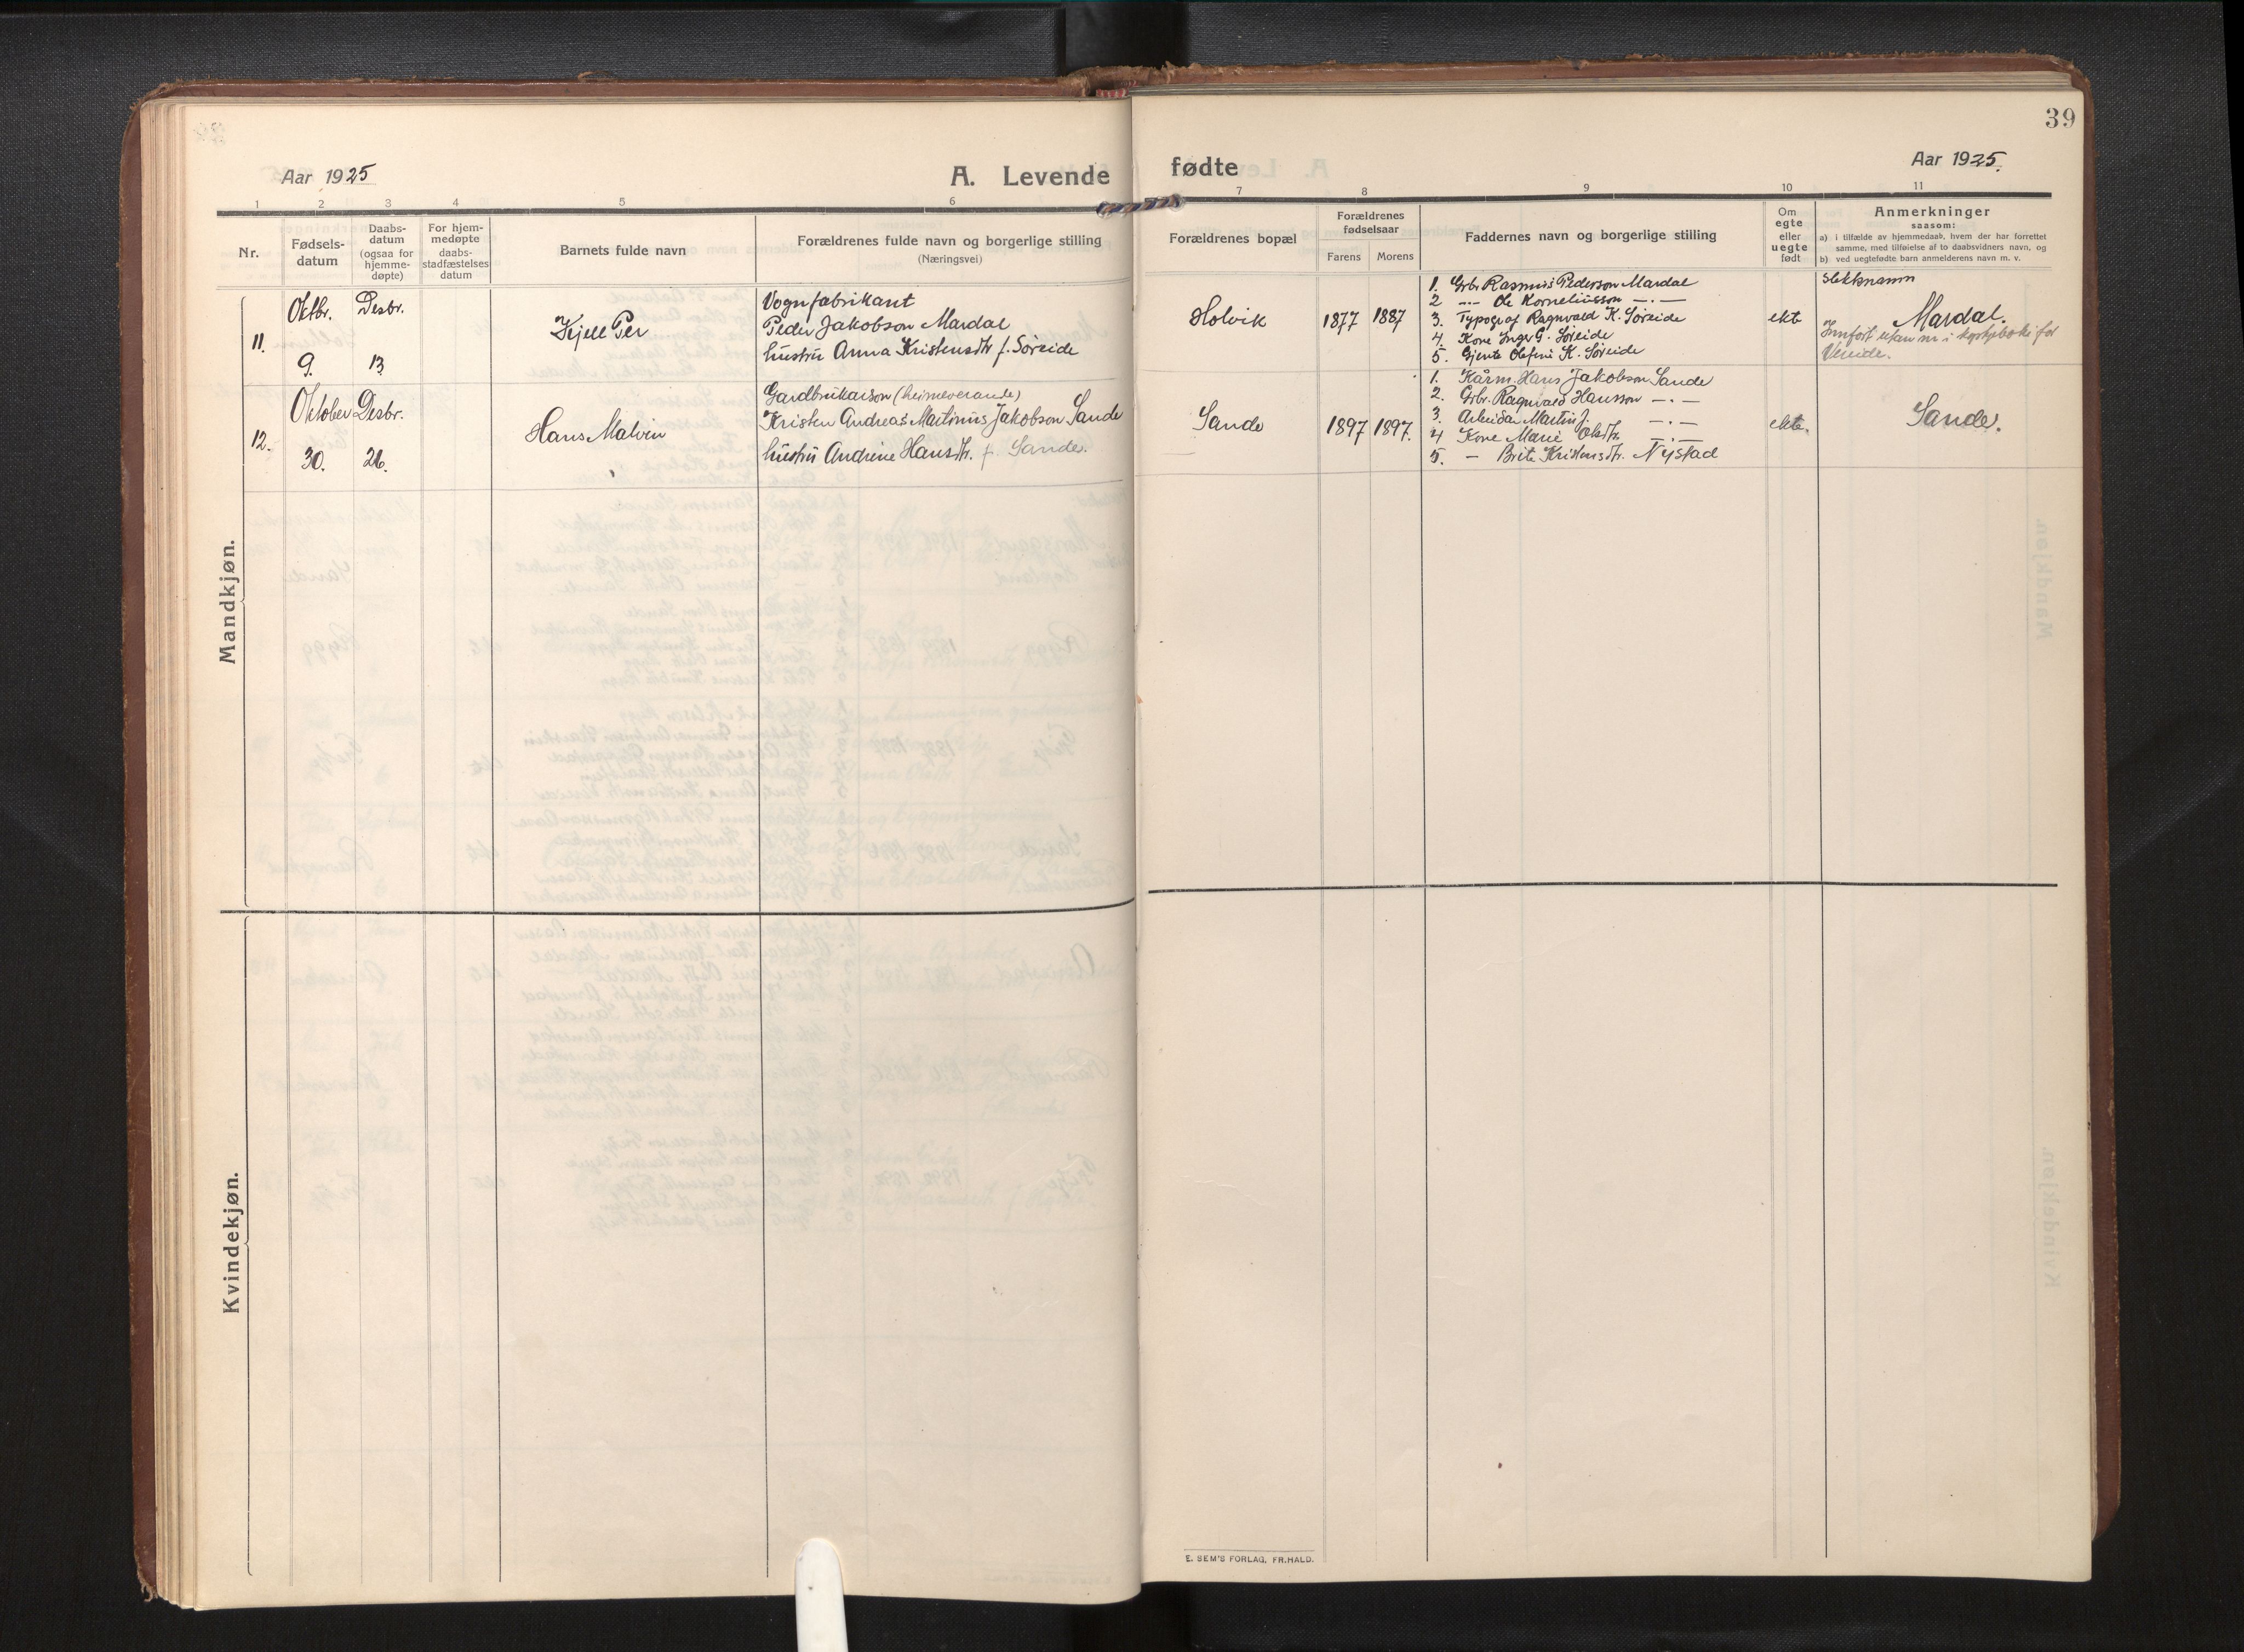 39
Aar 1925
A. Levende
fødte
Aar 1925.
1 2 3 4 5 6 7 8 9 10 11
Nr.
Fødsels-
datum
Daabs-
datum
(ogsaa for
hjemme-
døpte)
For hjem-
medøpte
daabs-
stadfæstelses
datum
Barnets fulde navn
Forældrenes fulde navn og borgerlige stilling
(Næringsvei)
Forældrenes bopæl
Forældrenes
fødselsaar
Farens Morens
Faddernes navn og borgerlige stilling
Om
egte
eller
uegte
født
Anmerkninger
saasom:
a) i tilfælde av hjemmedaab, hvem der har forrettet
samme, med tilføielse af to daabsvidners navn, og
b) ved uegtefødte barn anmelderens navn m. v.
Mandkjøn.
11.
Oktbr.
9.
Desbr.
13.
Kjell Per
Vognfabrikant
Peder Jakobson Mardal
hustru Anna Kristensdtr f. Søreide
Holvik
1877 1887
1. Grbr. Rasmus Pederson Mardal
2 -·- Ole Korneliusson -·-
3. Typograf Ragnvald K. Søreide
4. Kone Inger G. Søreide
5. Gjente Olefine K. Søreide
ekte
slektsnamn
Mardal.
Innført utan nr i kyrkjeboki for
Vereide.
12.
Oktober
30.
Desbr.
26.
Hans Malvin
Gardbrukarson (heimeverande)
Kristen Andreas Martinus Jakobson Sande
hustru Andrine Hansdtr. f. Sande.
Sande
1897 1897.
1. Kårm. Hans Jakobson Sande
2. Grbr. Ragnvald Hansson -·-
3. Arbeidar Martin J. -·-
4 Kone Marie Olsdtr. -·-
5. - Brite Kristensdtr. Nystad
ekte.
Sande.
Kvindekjøn.
E. SEM'S FORLAG, FR.HALD.